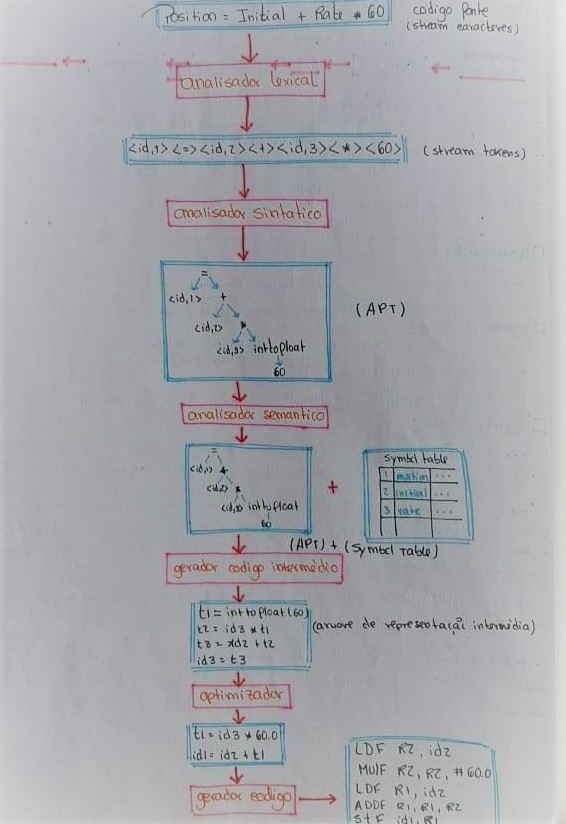 Position = Initial + Rate * 60
codigo fonte
(stream caracteres)
analisador lexical
<id,1> <=> <id,2> <+> <id,3> <*> <60>
(stream tokens)
analisador sintatico
=
<id,1> +
<id,2> *
<id,3> inttofloat
60
(APT)
analisador semantico
=
<id,1> +
<id,2> *
<id,3> inttofloat
60
+
Symbol table
1 position ...
2 initial ...
3 rate ...
(APT) + (Symbol Table)
gerador codigo intermédio
t1 = inttofloat(60)
t2 = id3 * t1
t3 = id2 + t2
id3 = t3
(arvore de representação intermédia)
optimizador
t1 = id3 * 60.0
id1 = id2 + t1
gerador codigo
LDF R2, id2
MULF R2, R2, #60.0
LDF R1, id2
ADDF R1, R1, R2
STF id1, R1